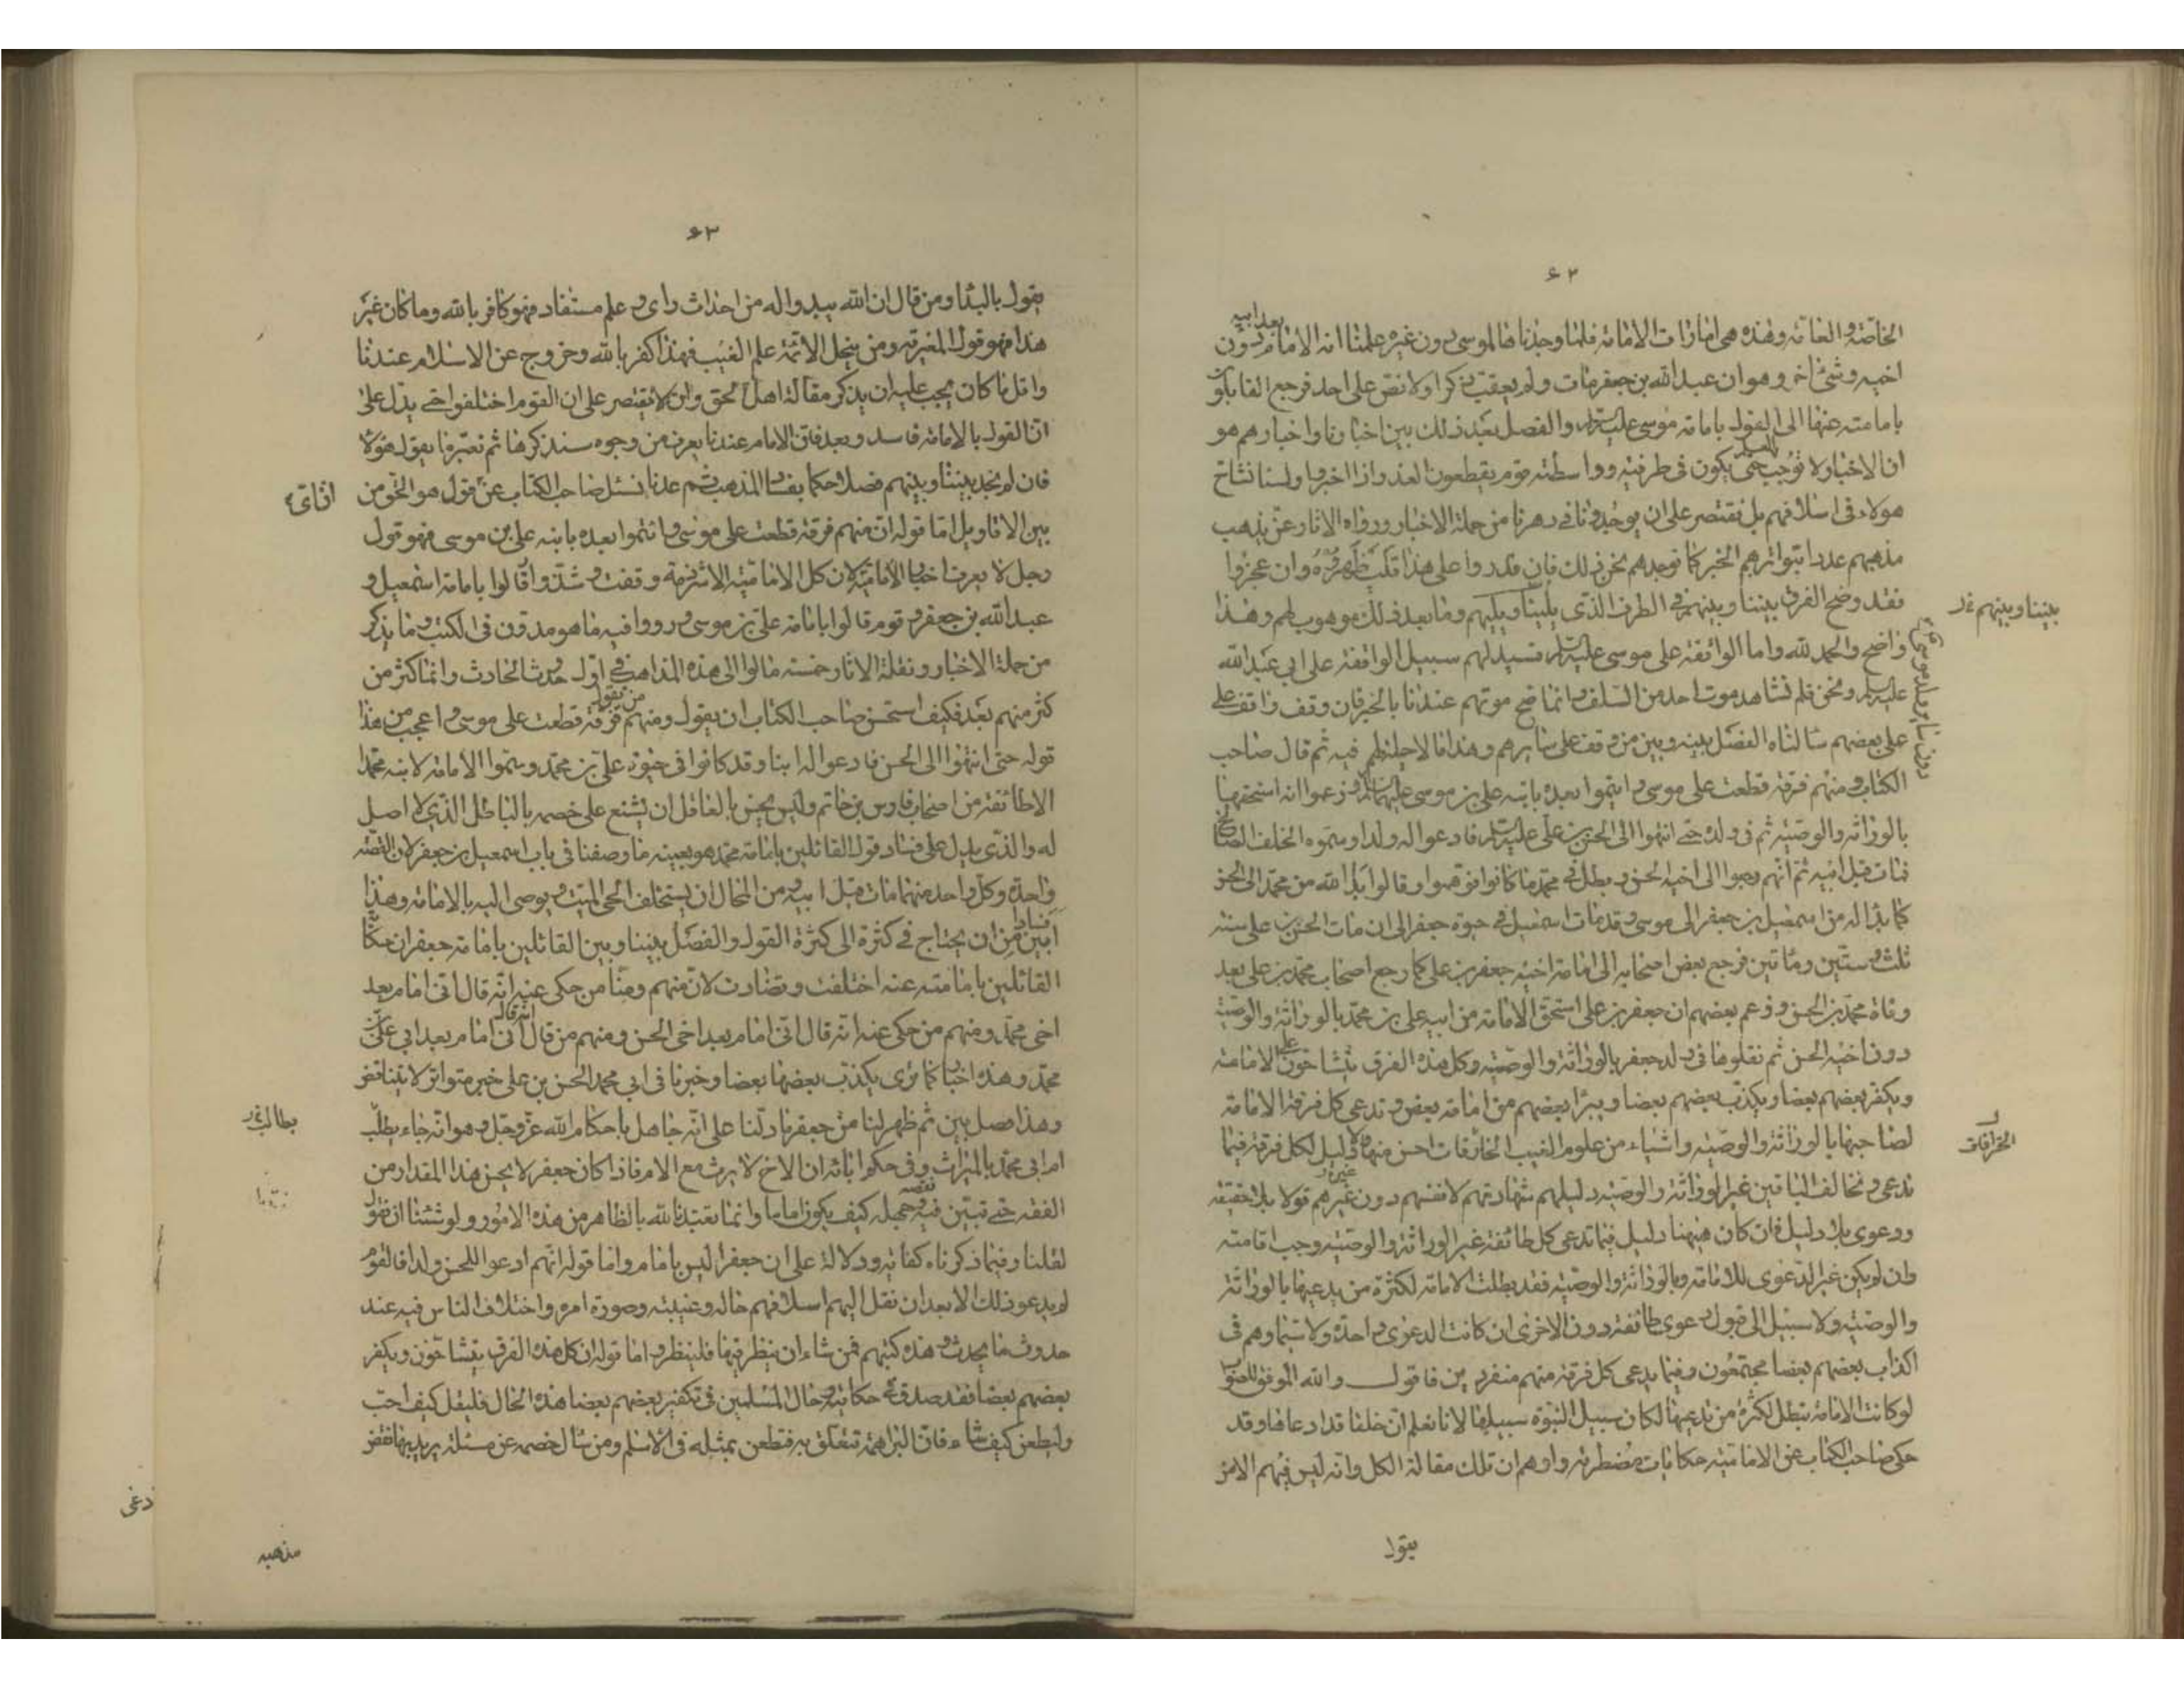 ٦٢
الخاصّة والعامّة وهذه هى امارات الامامة فلما وجدناها لموسى دون غيره علمنا انه الامام بعد ابيه دون
اخيه وشئ اخر وهو ان عبد الله بن جعفر مات ولم يعقب ذكرا ولا نص على احد فرجع القائلون
بامامته عنها الى القول بامامة موسى عليه السلام والفصل بعد ذلك بين اخبارنا واخبارهم هو
ان الاخبار لا توجب العلم حتى يكون فى طرفيه وواسطته قوم يقطعون العذر اذا اخبروا ولسنا نشاح
هولاء فى اسلافهم بل نقتصر على ان يوجدونا فى دهرنا من حملة الاخبار ورواه الاثار عمّن يذهب
مذهبهم عددا يتواتر بهم الخبر كما نوجدهم نحن ذلك فان قدروا على هذا فليظهروه وان عجزوا
فقد وضح الفرق بيننا وبينهم فى الطرف الذى يلينا ويليهم وما بعد ذلك موهوب لهم وهذا
واضح والحمد لله واما الواقفة على موسى عليه السلام فسبيلهم سبيل الواقفة على ابى عبد الله
عليه السلام ونحن فلم نشاهد موت احد من السلف وانما صح موتهم عندنا بالخبر فان وقف واقف على
على بعضهم سالناه الفصل بينه وبين من وقف على سايرهم وهذا ما لا حيلة لهم فيه ثم قال صاحب
الكتاب ومنهم فرقة قطعت على موسى وائتموا بعده بابنه على بن موسى عليهما السلام وزعموا انه استحقها
بالوراثة والوصيّة ثم فى ولده حتى انتهوا الى الحسن بن على عليه السلام فادعوا له ولدا وسموه الخلف الصالح
فمات قبل ابيه ثم انهم رجعوا الى اخيه الحسن وبطل فى محمد ما كانوا توهموا وقالوا بدا لله من محمد الى الحسن
كما بدا له من اسمعيل بن جعفر الى موسى وقد مات اسمعيل فى حيوة جعفر الى ان مات الحسن بن على سنة
ثلث وستين ومائتين فرجع بعض اصحابه الى امامة اخيه جعفر بن على كما رجع اصحاب محمد بن على بعد
وفاة محمد بن الحسن وزعم بعضهم ان جعفر بن على استحق الامامة من ابيه على بن محمد بالوراثة والوصيّة
دون اخيه الحسن ثم نقلوها فى ولد جعفر بالوراثة والوصيّة وكل هذه الفرق يتشاحّون على الامامة
ويكفر بعضهم بعضا ويكذب بعضهم بعضا ويبرا بعضهم من امامة بعض وتدعى كل فرقة الامامة
لصاحبها بالوراثة والوصيّة واشياء من علوم الغيب الخرافات احسن منها ولا دليل لكل فرقة فيما
تدعى وتخالف الباقين غير الوراثة والوصيّة دليلهم شهادتهم لانفسهم دون غيرهم قولا بلا حقيقة
ودعوى بلا دليل فان كان هيهنا دليل فيما تدعى كل طائفة غير الوراثة والوصيّة وجب اقامته
وان لم يكن غير الدعوى للامامة بالوراثة والوصيّة فقد بطلت الامامة لكثرة من يدعيها بالوراثة
والوصيّة ولا سبيل الى قبول دعوى طائفة دون الاخرى ان كانت الدعوى واحدة ولا سيّما وهم فى
اكذاب بعضهم بعضا مجتمعون وفيما يدعى كل فرقة منهم منفردين فاقول والله الموفق للصواب
لو كانت الامامة تبطل لكثرة من يدعيها لكان سبيل النبوّة سبيلها لانا نعلم ان خلقا قد ادعاها وقد
حكى صاحب الكتاب عن الامامية حكايات مضطربة واوهم ان تلك مقالة الكل وانه ليس فيهم الا من
يقول
بيننا وبينهم
الخرافات
٦٣
يقول بالبدا ومن قال ان الله يبدو اله من احداث راى وعلم مستفاد فهو كافر بالله وما كان غير
هذا فهو قول المغيرية ومن ينحل الائمّة علم الغيب فهذا كفر بالله وخروج عن الاسلام عندنا
واقل ما كان يجب عليه ان يذكر مقالة اهل الحق وان لا يقتصر على ان القوم اختلفوا حتى يدل على
انّ القول بالامامة فاسد وبعد فانّ الامام عندنا يعرف من وجوه سنذكرها ثم نعتبر ما يقول هولاء
فان لم نجد بيننا وبينهم فصلا حكمنا بفساد المذهب ثم عدنا نسئل صاحب الكتاب عن قول هو الحق من
بين الاقاويل اما قوله ان منهم فرقة قطعت على موسى وائتموا بعده بابنه على بن موسى فهو قول
رجل لا يعرف اخبار الاماميّة لان كل الاماميّة الا شرذمة وقفت وشذّوا قالوا بامامة اسمعيل و
عبد الله بن جعفر وقوم قالوا بامامة على بن موسى ورووا فيه ما هو مدوّن فى الكتب وما يذكر
من حملة الاخبار ونقلة الاثار خمسة مالوا الى هذه المذاهب فى اوّل حدوث الحادث وانما كثر من
كثر منهم بعد فكيف استحسن صاحب الكتاب ان يقول ومنهم فرقة قطعت على موسى واعجب من هذا
قوله حتى انتهوا الى الحسن فادعوا له ابنا وقد كانوا فى حيوة على بن محمد وسمّوا الامامة لابنه محمد
الا طائفة من اصحاب فارس بن حاتم وليس يحسن بالعاقل ان يشنع على خصمه بالباطل الذى لا اصل
له والذى يدل على فساد قول القائلين بامامة محمد هو بعينه ما وصفنا فى باب اسمعيل بن جعفر لان القصّة
واحدة وكل واحد منهما مات قبل ابيه ومن المحال ان يستخلف الحى الميت ويوصى اليه بالامامة وهذا
ابين فسادا من ان يحتاج فى كثرة الى كثرة القول والفصل بيننا وبين القائلين بامامة جعفر ان حكاية
القائلين بامامته عنه اختلفت وتضادت لان منهم ومنّا من حكى عنه انه قال انى امام بعد
اخى محمد ومنهم من حكى عنه انه قال انى امام بعد اخى الحسن ومنهم من قال انه قال انى امام بعد ابى على بن
محمد وهذه اخبار كما ترى يكذب بعضها بعضا وخبرنا فى ابى محمد الحسن بن على خبر متواتر لا يتناقض
وهذا فصل بين ثم ظهر لنا من جعفر ما دلّنا على انّه جاهل باحكام الله عز وجل وهو انه جاء يطلب
ام ابى محمد بالميراث وفى حكم ابائه ان الاخ لا يرث مع الام فاذا كان جعفر لا يحسن هذا المقدار من
الفقه حتى تبين فيه نقصه وجهله كيف يكون اماما وانما تعبّدنا الله بالظاهر من هذه الامور ولو شئنا ان نقول
لقلنا وفيما ذكرناه كفاية ودلالة على ان جعفرا ليس بامام واما قوله انهم ادعوا للحسن ولدا فالقوم
لم يدعوا ذلك الا بعد ان نقل اليهم اسلافهم حاله وغيبته وصورة امره واختلاف الناس فيه عند
حدوث ما يحدث وهذه كتبهم فمن شاء ان ينظر فيها فلينظر واما قوله ان كل هذه الفرق يتشاحّون ويكفر
بعضهم بعضا فقد صدق فى حكايته وحال المسلمين فى تكفير بعضهم بعضا هذه الحال فليقل كيف احب
وليطعن كيف شاء فان البراهمة تتعلق به فتطعن بمثله فى الاسلام ومن سال خصمه عن مسئلة يريد بها نقض
مذهبه